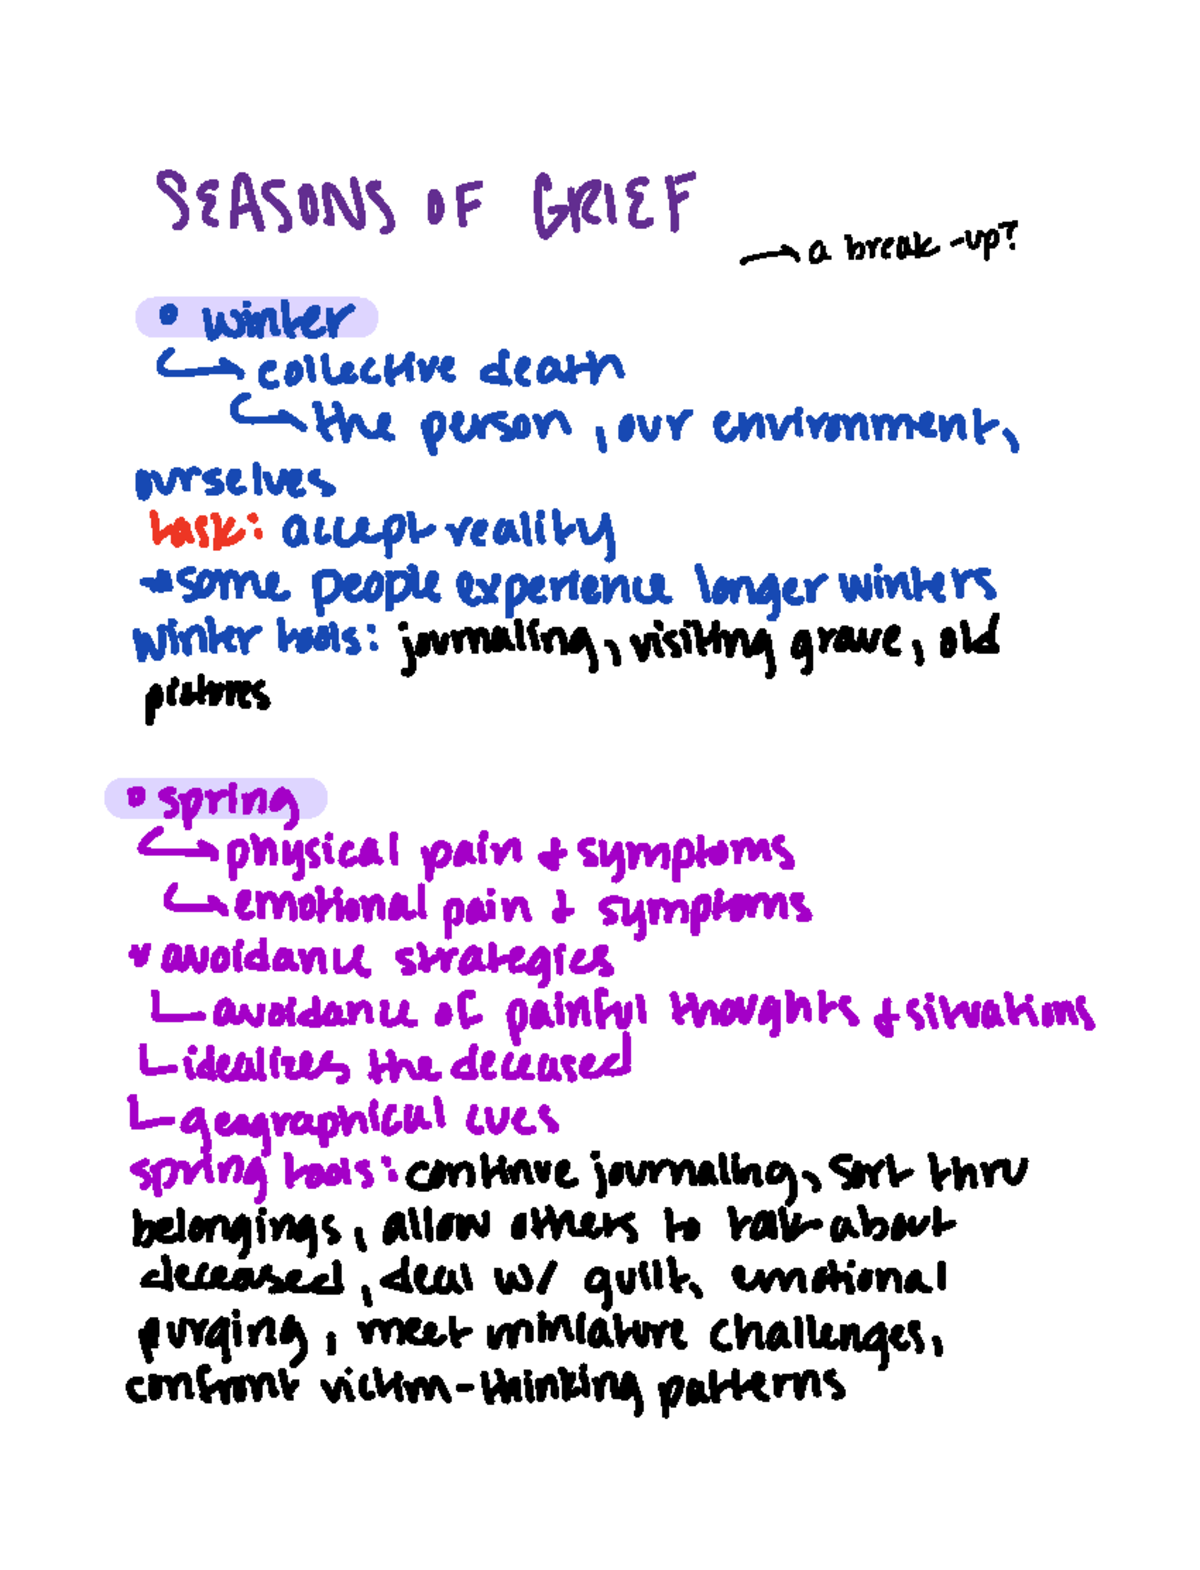 SEASONS OF GRIEF
→ a break-up?
• winter
↳ collective death
↳ the person, our environment,
ourselves
task: accept reality
→ some people experience longer winters
winter tools: journaling, visiting grave, old
pictures
• spring
↳ physical pain & symptoms
↳ emotional pain & symptoms
avoidance strategies
avoidance of painful thoughts & situations
idealizes the deceased
geographical cues
spring tools: continue journaling, sort thru
belongings, allow others to talk about
deceased, deal w/ guilt, emotional
purging, meet miniature challenges,
confront victim-thinking patterns